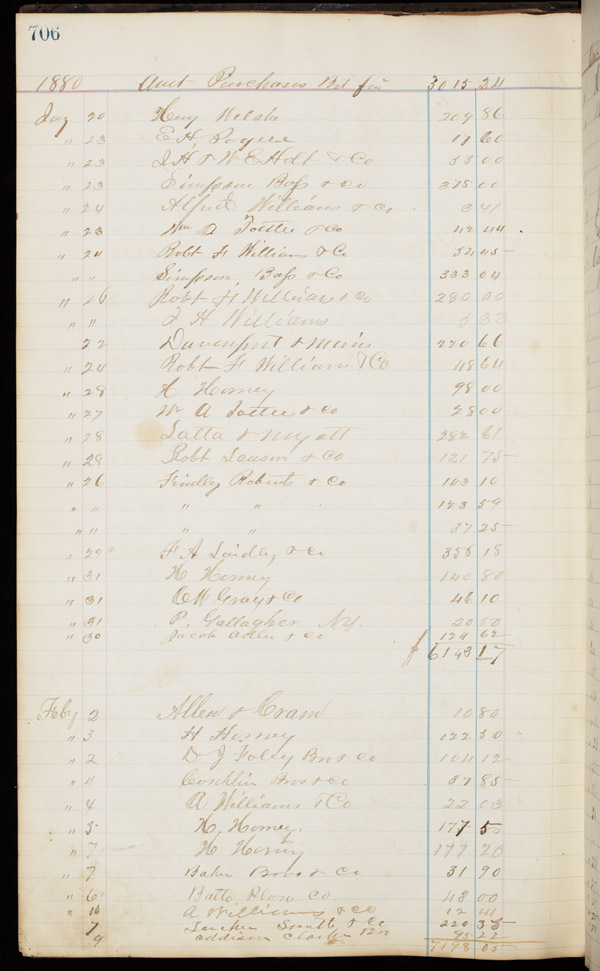 706
1880 Amt Purchases Bt for 3015 24
Jay 20 Heny Welsh 209 86
" 23 E H Pogue 17 60
" 23 J H & W E Holt & Co 33 00
" 23 Simpson Bass & Co 375 00
" 24 Alfred Williams & Co 3 41
" 23 Wm A & Co 42 44
" 24 Robt F Williams & Co 52 45
" " Simpson, Bass & Co 333 04
" 26 Robt F Williams & Co 280 00
" " J H Williams 5 33
22 Davenport & Morris 220 66
" 24 Robt F Williams & Co 48 64
" 28 H Horney 98 00
" 27 Wm A & Co 28 00
" 28 Latta & Myatt 282 61
" 29 Robt Lawson & Co 121 75
" 26 Findley Roberts & Co 103 10
" " " " 123 59
" " " " 37 25
" 29 F A Laidley & Co 356 18
" 31 H Horney 140 80
" 31 C W Gray & Co 46 10
" 31 P. Gallagher NY 20 50
" 30 Jacob Allen & Co 124 62
6143 17
Feby 2 Allen & Cram 10 80
" 3 H Horney 122 50
" 2 D J Foley Bro & Co 104 12
" 4 Conklin Bros & Co 37 85
" 4 A Williams & Co 22 03
" 5 H, Horney 177 50
" 7 H Horney 177 20
" 7 Baker Bros & Co 31 90
" 6 Balto Plow Co 48 00
" 10 A Williams & Co 12 41
7 Smith & Co 220 35
9 Addison Clark
7198 05